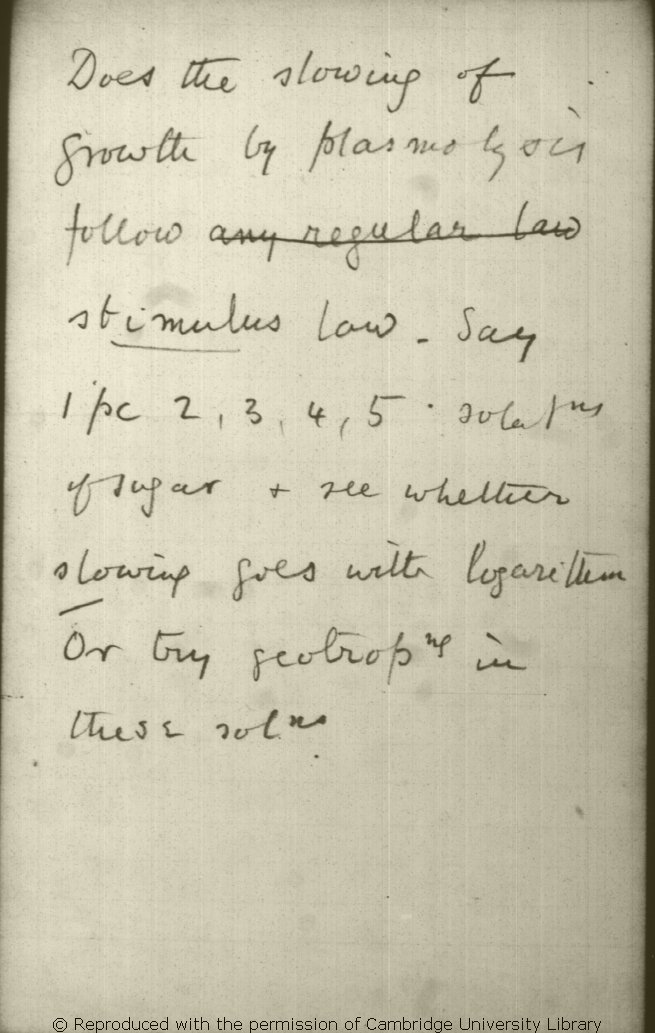 Does the slowing of
growth by plasmolysis
follow any regular law
stimulus law - Say
1 pc 2, 3, 4, 5 solutns
of sugar + see whether
slowing goes with logarithm
Or try geotropng in
these solns
© Reproduced with the permission of Cambridge University Library